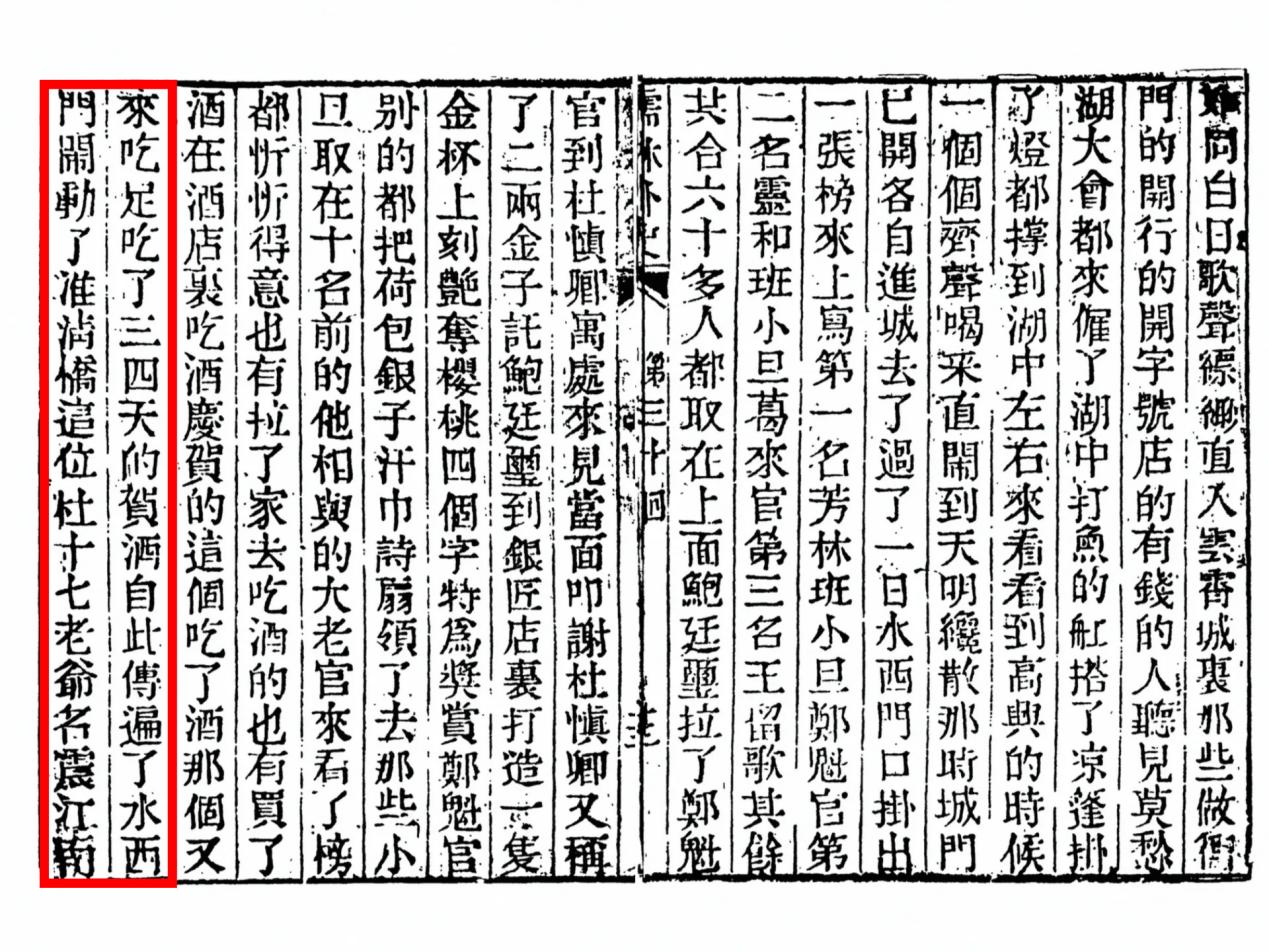 同白日歌聲縹緲直入雲霄城裏那些做衙
門的開行的開字號店的有錢的人聽見莫愁
湖大會都來僱了湖中打魚的舡搭了凉篷掛
了燈都撑到湖中左右來看看到高興的時候
一個個齊聲喝采直鬧到天明纔散那時城門
已開各自進城去了過了一日水西門口掛出
一張榜來上寫第一名芳林班小旦鄭魁官第
二名靈和班小旦葛來官第三名王留歌其餘
共合六十多人都取在上面鮑廷璽拉了鄭魁
儒林外史 第三十回
官到杜慎卿寓處來見當面叩謝杜慎卿又稱
了二兩金子託鮑廷璽到銀匠店裏打造一隻
金杯上刻艷奪櫻桃四個字特爲奬賞鄭魁官
别的都把荷包銀子汗巾詩扇領了去那些小
旦取在十名前的他相與的大老官來看了榜
都忻忻得意也有拉了家去吃酒的也有買了
酒在酒店裏吃酒慶賀的這個吃了酒那個又
來吃足吃了三四天的賀酒自此傳遍了水西
門鬧動了淮清橋這位杜十七老爺名震江南